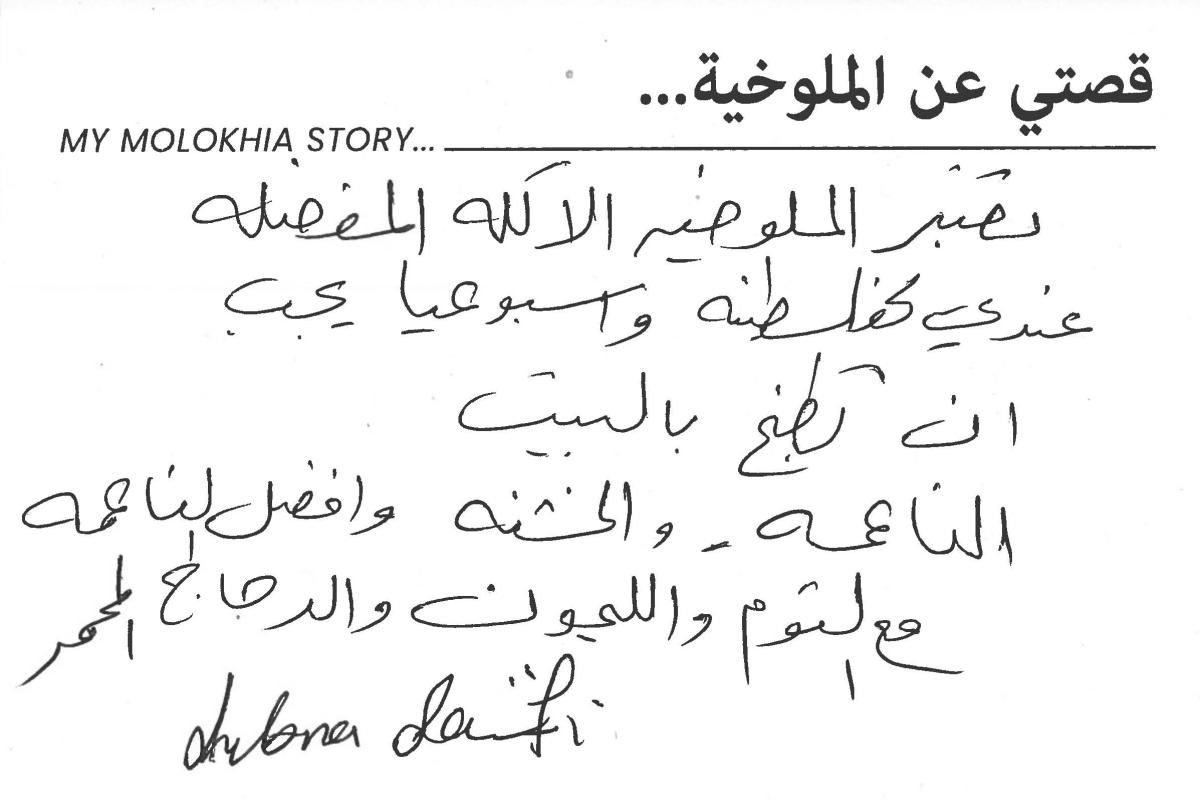 قصتي عن الملوخية...
MY MOLOKHIA STORY...
تعتبر الملوخيه الاكله المفضله
عندي كفلسطنيه واسبوعيا يجب
ان تطبخ بالبيت
الناعمه - والخشنه وافضل الناعمه
مع الثوم والليمون والدجاج المحمر
Lubna